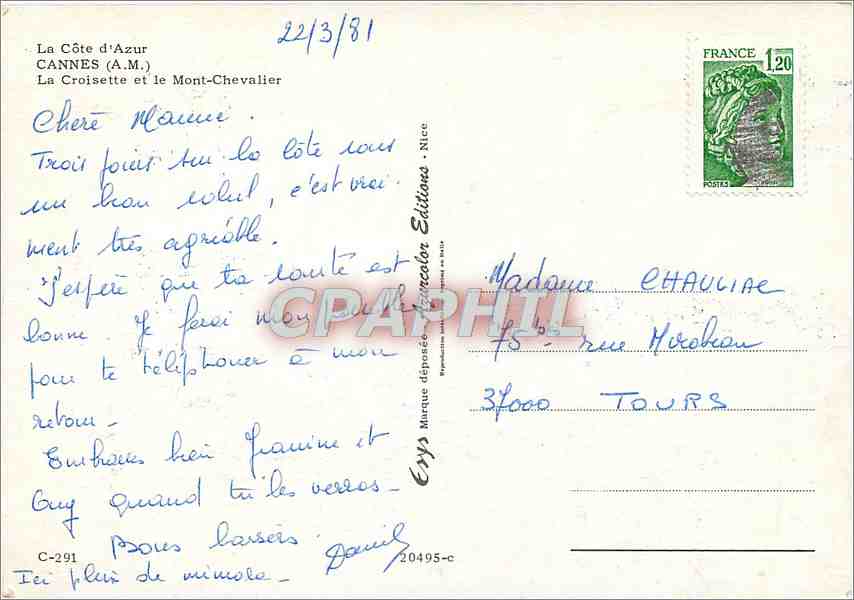 22/3/81
La Côte d'Azur
CANNES (A.M.)
La Croisette et le Mont-Chevalier
Chère Mamie.
Trois jours sur la côte sous
un bon soleil, c'est vrai-
ment très agréable.
J'espère que ta santé est
bonne. Je ferai mon
pour te téléphoner à mon
retour_
Embrasse bien Jeanine et
Guy quand tu les verras_
Bons baisers
Daniel
Ici plein de mimosa_
C-291
20495-c
Esys Marque déposée Azurcolor Editions - Nice
FRANCE 1,20
POSTES
Madame CHAULIAC
75 bis rue Mirabeau
37000 TOURS
CPAPHIL